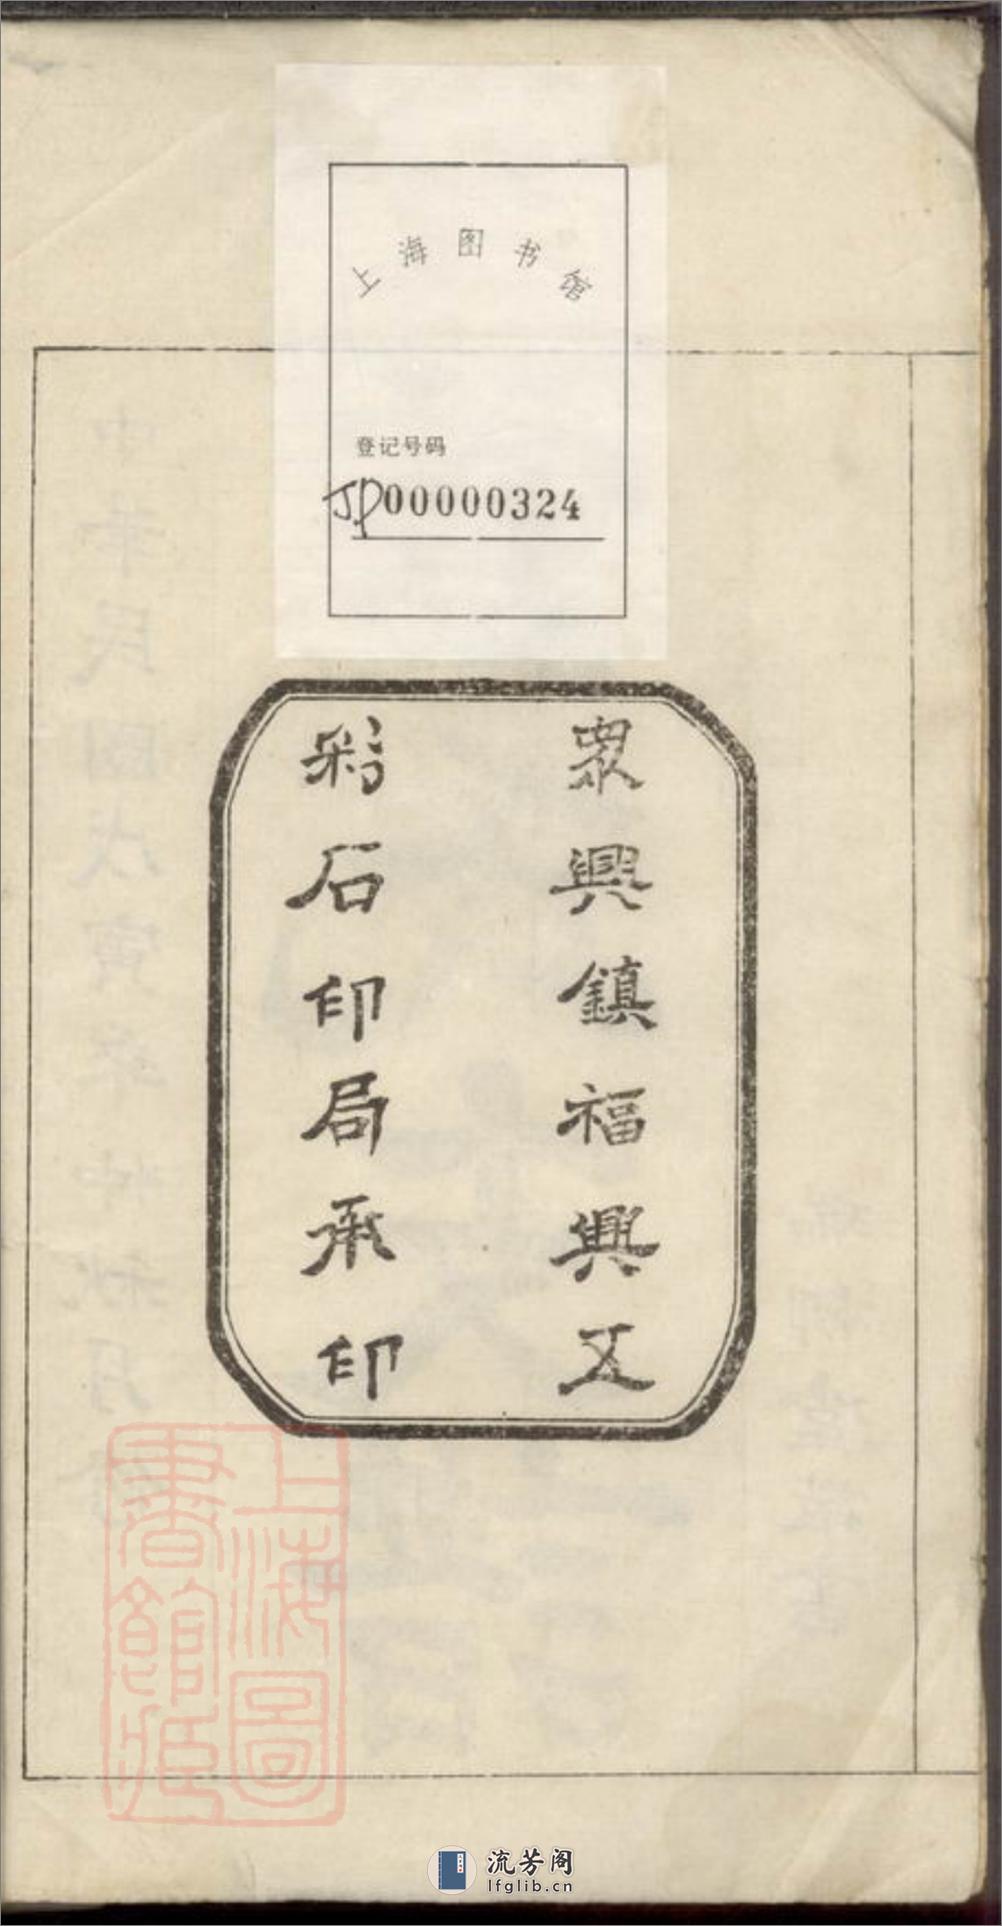 上海图书馆
登记号码
JP00000324
眾興鎮福興五
彩石印局承印
上海圖書館藏
流芳阁
lfglib.cn